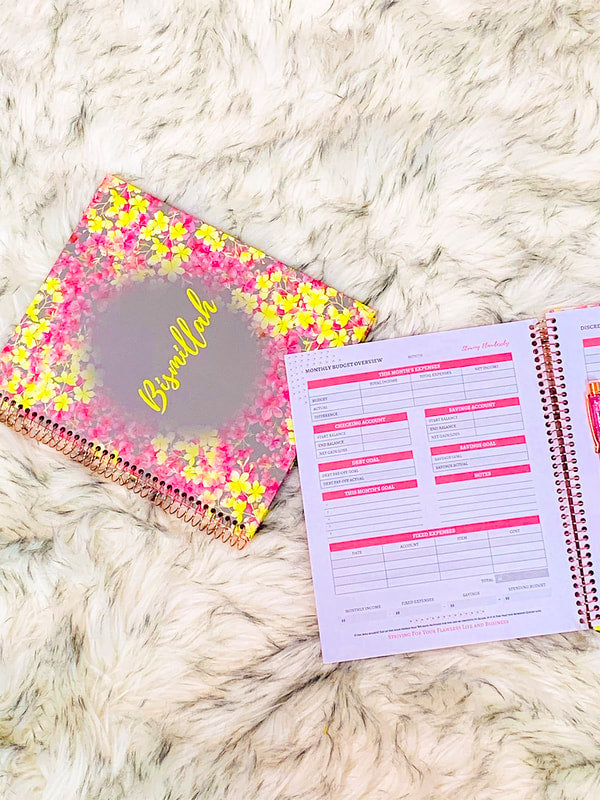 Bismillah
MONTHLY BUDGET OVERVIEW
MONTH
THIS MONTH'S EXPENSES
TOTAL INCOME TOTAL EXPENSES NET INCOME
BUDGET
ACTUAL
DIFFERENCE
CHECKING ACCOUNT
START BALANCE
END BALANCE
NET GAIN/LOSS
SAVINGS ACCOUNT
START BALANCE
END BALANCE
NET GAIN/LOSS
DEBT GOAL
DEBT PAY-OFF GOAL
DEBT PAY-OFF ACTUAL
SAVINGS GOAL
SAVINGS GOAL
SAVINGS ACTUAL
THIS MONTH'S GOAL
NOTES
FIXED EXPENSES
DATE ACCOUNT ITEM COST
TOTAL
MONTHLY INCOME FIXED EXPENSES SAVINGS SPENDING BUDGET
STRIVING FOR YOUR FLAWLESS LIFE AND BUSINESS